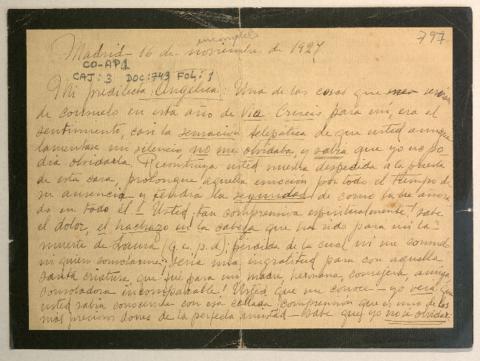 797
incompleta
Madrid - 16 de noviembre de 1927
CO-AP1
CAJ: 3 DOC: 749 FOL: 1
Mi predilecta Angélica: Una de las cosas que me
de consuelo en este año de Via-Crucis para mi, era el
sentimiento, con la sensación telepática de que usted aunque
lamentase mi silencio no me olvidaba, y sabía que yo no po
día olvidarla. Reconstruya usted nuestra despedida a la puerta
de esta casa, prolongue aquella emoción por todo el tiempo de
su ausencia y tendrá la seguridad de como la he
do en todo él! Usted, tan comprensiva espiritualmente! sabe
el dolor, el hachazo en la cabeza que ha sido para mi la
muerte de Laura (q. e. p. d.) pérdida de la cual ni me consuelo
ni quiero consolarme: sería una ingratitud para con aquella
santa criatura que fué para mi madre, hermana, consejera, amiga
consoladora incomparable! Usted que me conoce - yo veía que
usted sabía conocerme con esa callada comprensión que es uno de los
mas preciosos dones de la perfecta amistad - sabe que yo no sé olvidar.